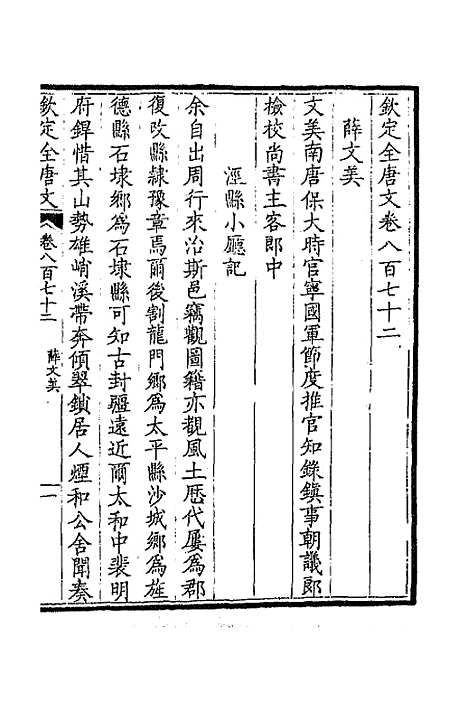 欽定全唐文卷八百七十二
薛文美
文美南唐保大時官寧國軍節度推官知錄鎮事朝議郎
檢校尚書主客郎中
涇縣小廳記
余自出周行來治斯邑竊觀圖籍亦觀風土厯代屢為郡
復改縣隸豫章焉爾後割龍門鄉為太平縣沙城鄉為旌
德縣石埭鄉為石埭縣可知古封疆遠近爾太和中裴明
府鍔惜其山勢雄峭溪帶奔傾翠鎖居人煙和公舍聞奏
欽定全唐文
卷八百七十二
薛文美
一